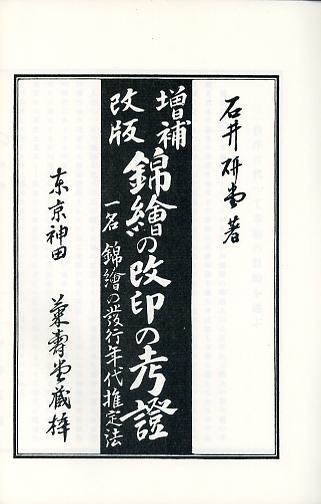 石井研堂著
増補
改版
錦繪の改印の考證
一名 錦繪の發行年代推定法
東京神田 菊壽堂蔵梓